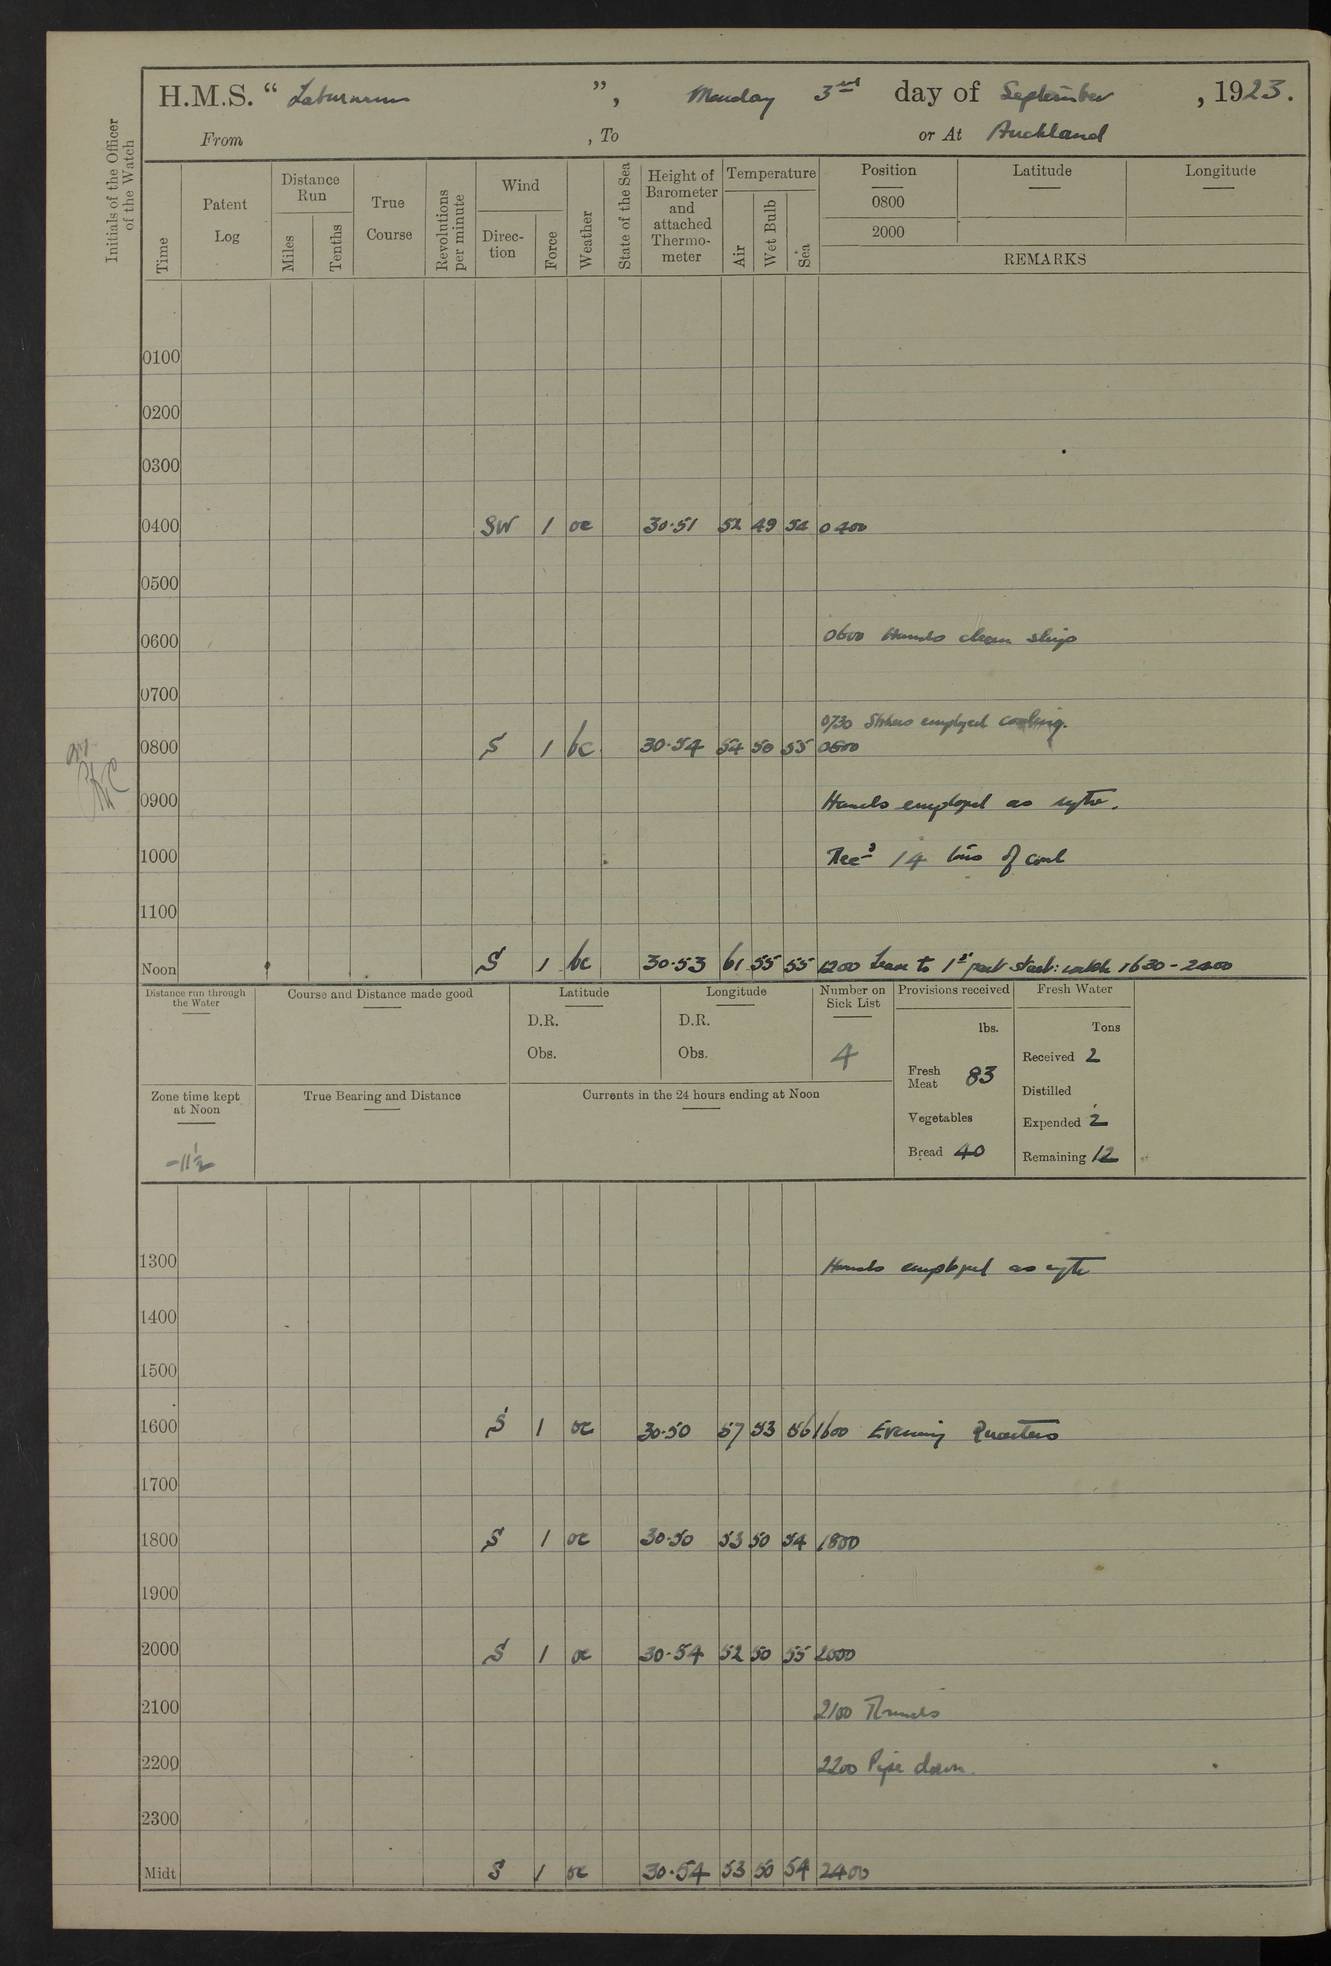 H.M.S. “ Laburnum ”, Monday 3rd day of September, 1923.
From , To or At Auckland
Initials of the Officer of the Watch
Time
Patent Log
Distance Run
Miles
Tenths
True Course
Revolutions per minute
Wind
Direc-tion
Force
Weather
State of the Sea
Height of Barometer and attached Thermo-meter
Temperature
Air
Wet Bulb
Sea
Position
0800
2000
Latitude
Longitude
REMARKS
0100
0200
0300
0400 SW 1 oc 30·51 52 49 54 0400
0500
0600 0600 Hands clean ship
0700
0730 Stokers employed coaling.
0800 S 1 bc 30·54 54 50 55 0800
0900 Hands employed as reqte.
1000 Recd 14 tons of coal
1100
Noon S 1 bc 30·53 61 55 55 1200 Leave to 1st part starb: watch 1630 - 2400
Distance run through the Water
Course and Distance made good
Latitude
D.R.
Obs.
Longitude
D.R.
Obs.
Number on Sick List
4
Provisions received
lbs.
Fresh Meat 83
Vegetables
Bread 40
Fresh Water
Tons
Received 2
Distilled
Expended 2
Remaining 12
Zone time kept at Noon
-11½
True Bearing and Distance
Currents in the 24 hours ending at Noon
1300 Hands employed as reqte
1400
1500
1600 S 1 oc 30·50 57 53 56 1600 Evening Quarters
1700
1800 S 1 oc 30·50 53 50 54 1800
1900
2000 S 1 oc 30·54 52 50 55 2000
2100 2100 Rounds
2200 2200 Pipe down.
2300
Midt S 1 oc 30·54 53 50 54 2400